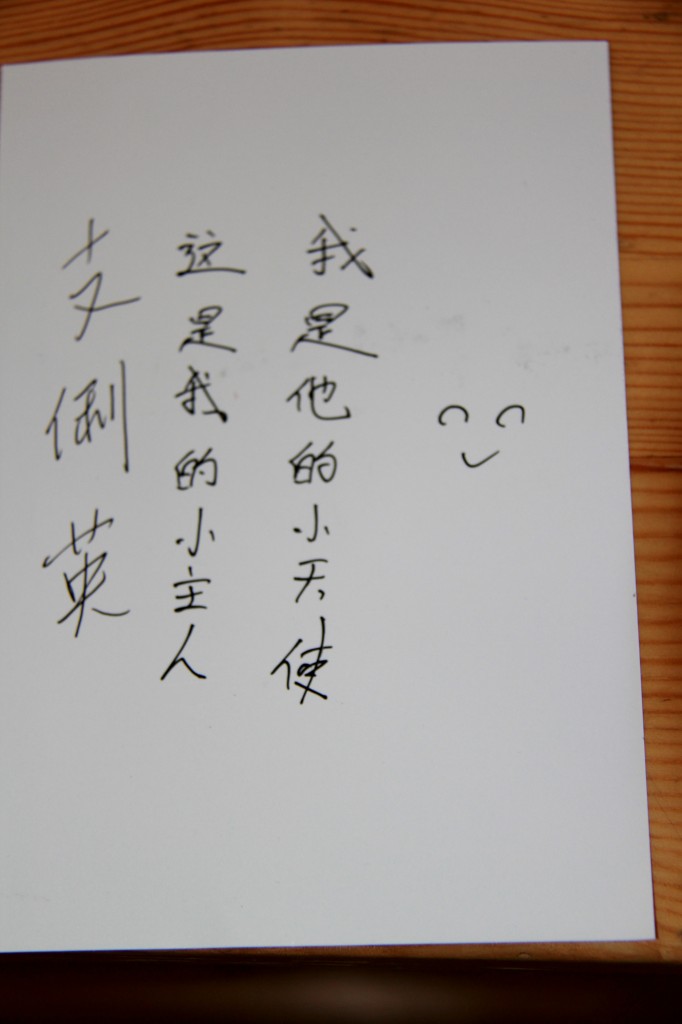 我是他的小天使
这是我的小主人
支俐英